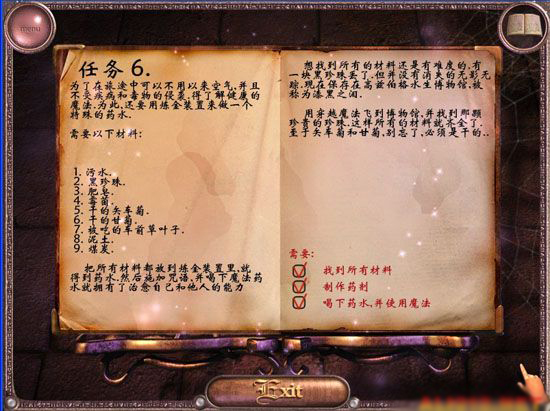 menu
任务 6.
为了在旅途中可以不用以来空气,并且
不受疾病和毒物的侵害,得了解健康的
魔法.为此,还要用炼金装置来做一个
特殊的药水.
需要以下材料:
1. 污水.
2. 黑珍珠.
3. 肥皂.
4. 霉菌.
5. 干的矢车菊.
6. 干的甘菊.
7. 被吃的车前草叶子.
8. 泥土.
9. 煤炭.
把所有材料都放到炼金装置里,就
得到药水.然后施加咒语,并喝下魔法药
水就拥有了治愈自己和他人的能力
想找到所有的材料还是有难度的.有
一块黑珍珠丢了.但并没有消失的无影无
踪.现在保存在高兹伯格水生博物馆,被
称为漆黑之泪.
用穿越魔法飞到博物馆,并找到那颗
珍贵的珍珠.这样所有的材料就齐全了.
至于矢车菊和甘菊,别忘了,必须是干的..
需要:
找到所有材料
制作药剂
喝下药水,并使用魔法
Exit